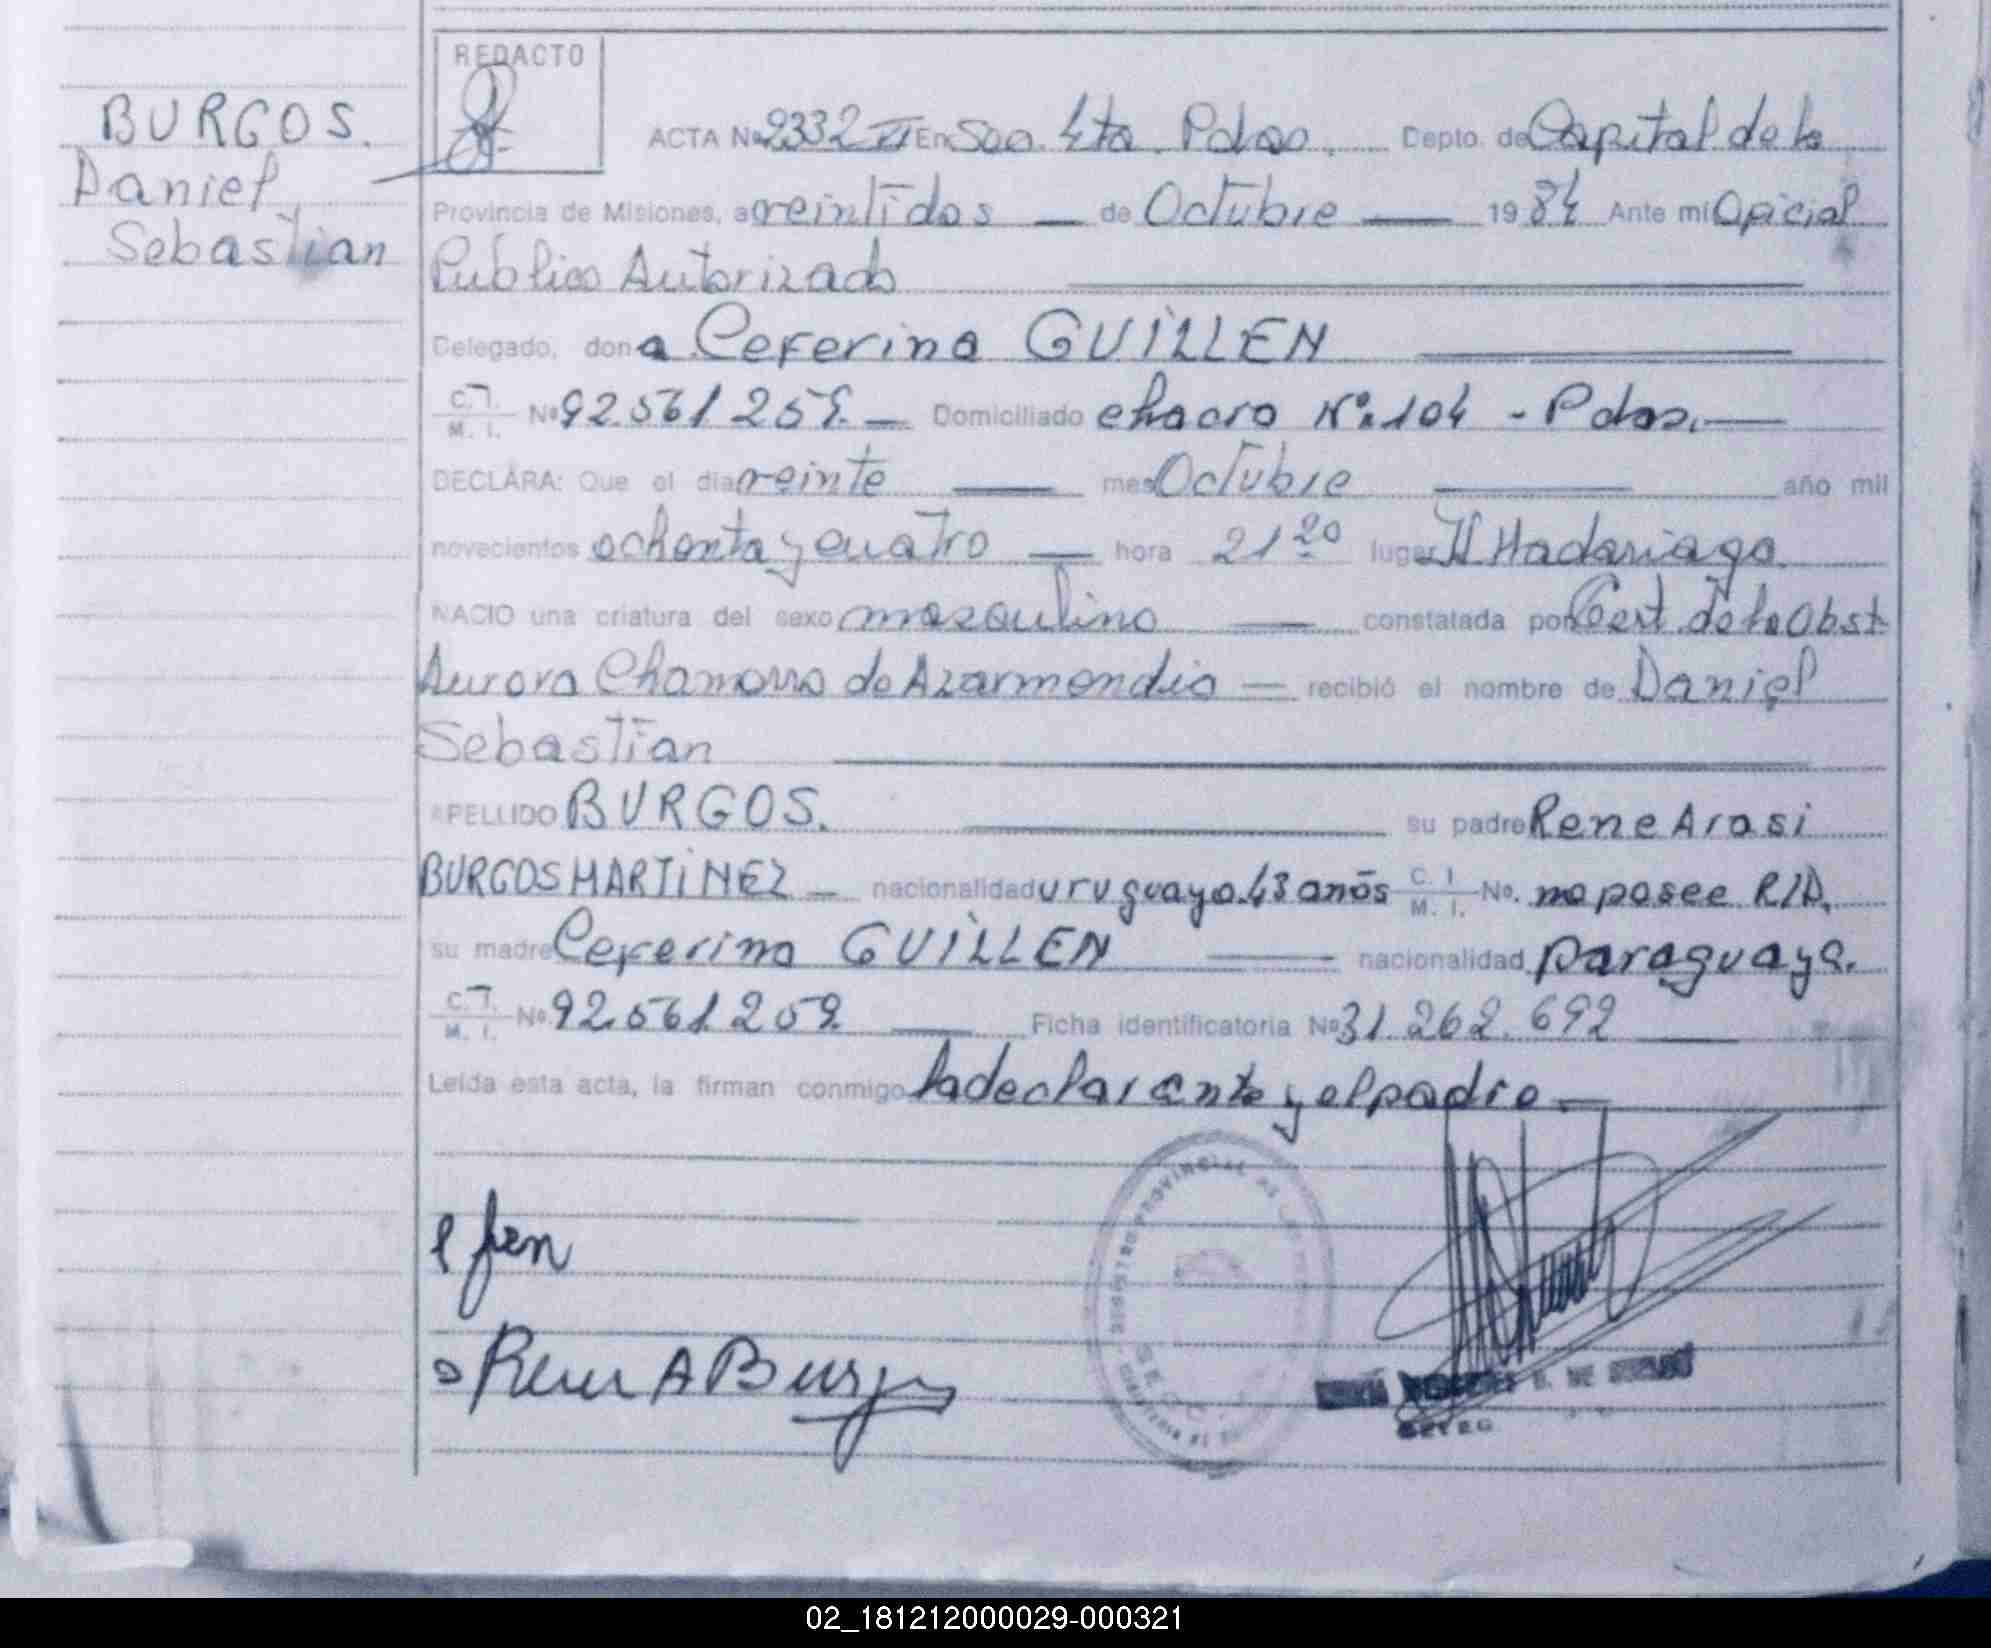 REDACTO
BURGOS.
Daniel
Sebastian
ACTA No 2332 VI En Sec. 4ta. Pdas. Depto. de Capital de la
Provincia de Misiones, a veintidos de Octubre 1984 Ante mi Oficial
Publico Autorizado
Delegado, dona Ceferina GUILLEN
C.I. M. I. No 92.561.259. Domiciliado chacra Nº 104 - Pdas.
DECLARA: Que el dia veinte mes Octubre año mil
novecientos ochenta y cuatro hora 21 20 lugar H Madariaga
NACIO una criatura del sexo masculino constatada por Cert. de la Obst.
Aurora Chamorro de Azarmendia recibió el nombre de Daniel
Sebastian
APELLIDO BURGOS. su padre Rene Arasi
BURGOS MARTINEZ nacionalidad uruguaya. 43 años C. I M. I. No. no posee R/D.
su madre Ceferina GUILLEN nacionalidad paraguaya.
C.I. M. I. No 92.561.259 Ficha identificatoria No 31.262.692
Leída esta acta, la firman conmigo la declarante y el padre
Rene A Burgos
REGISTRO PROVINCIAL DE LAS
02_181212000029-000321